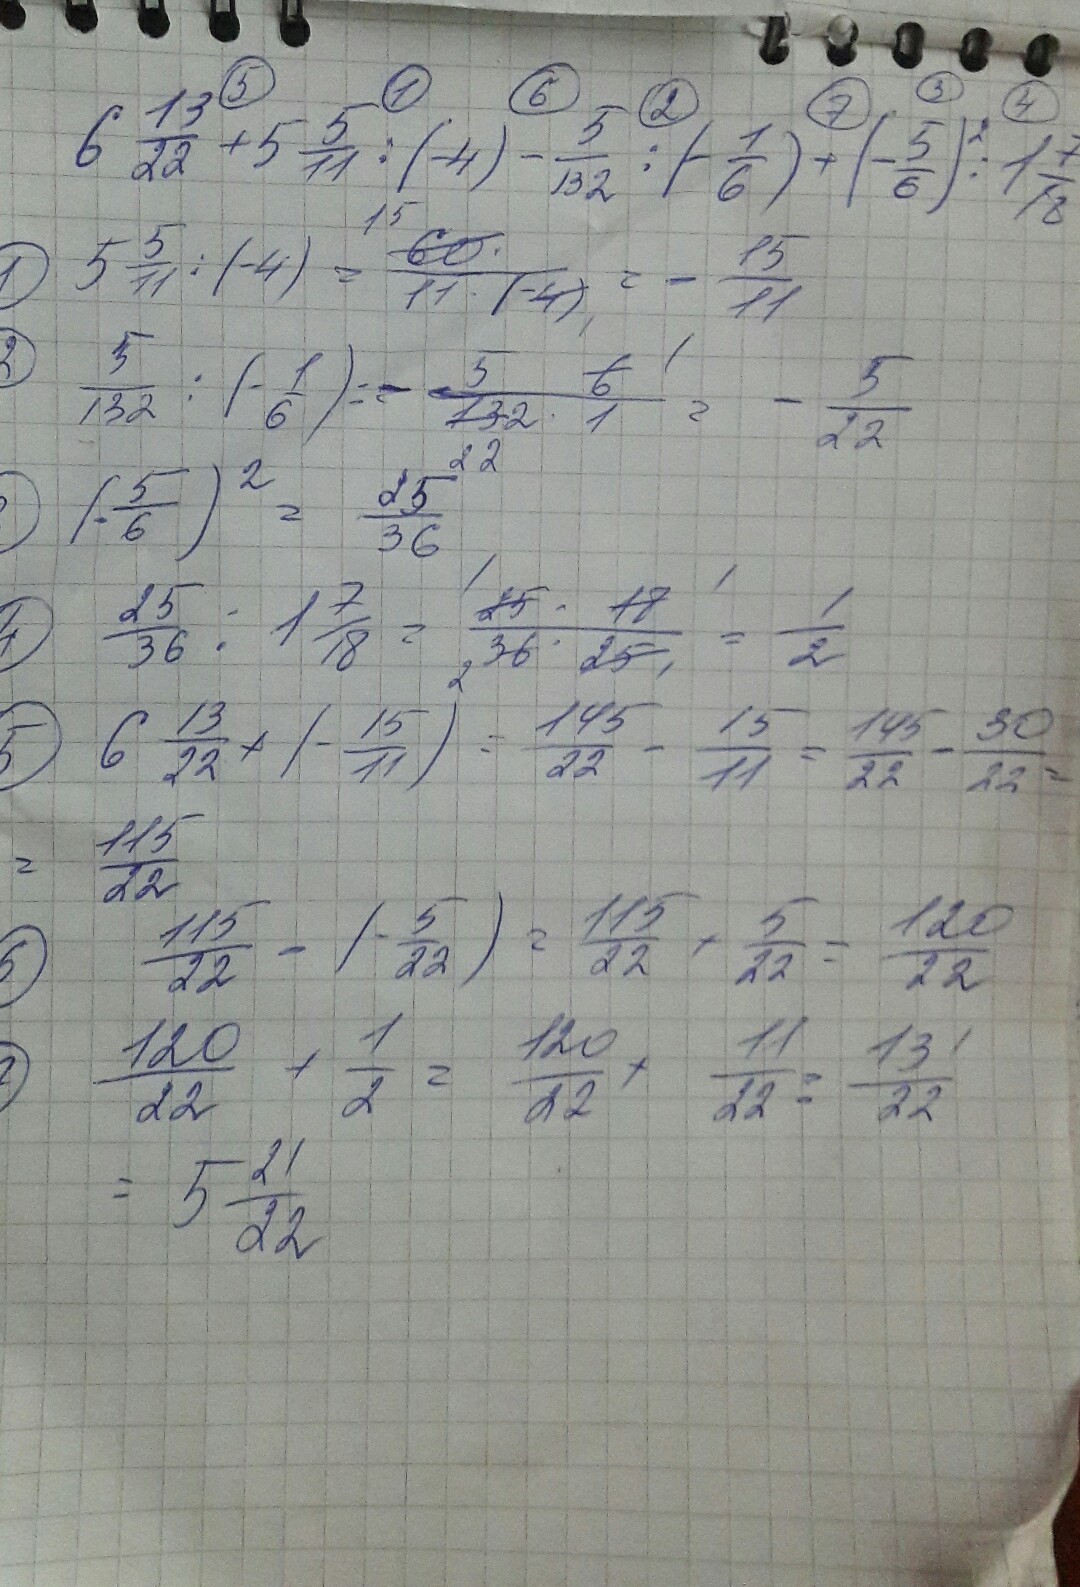 ⑤ ① ⑥ ② ⑦ ③ ④
6 13/22 + 5 5/11 : (-4) - 5/132 : (-1/6) + (-5/6)² : 1 7/18
① 5 5/11 : (-4) = 15 60/11·(-4) = - 15/11
② 5/132 : (-1/6) = - 5/132 · 6/1 = - 5/22
22
(-5/6)² = 25/36
④ 25/36 : 1 7/18 = 25·18/36·25 = 1/2
⑤ 6 13/22 + (-15/11) = 145/22 - 15/11 = 145/22 - 30/22 =
= 115/22
⑥ 115/22 - (-5/22) = 115/22 + 5/22 = 120/22
⑦ 120/22 + 1/2 = 120/22 + 11/22 = 131/22
= 5 21/22